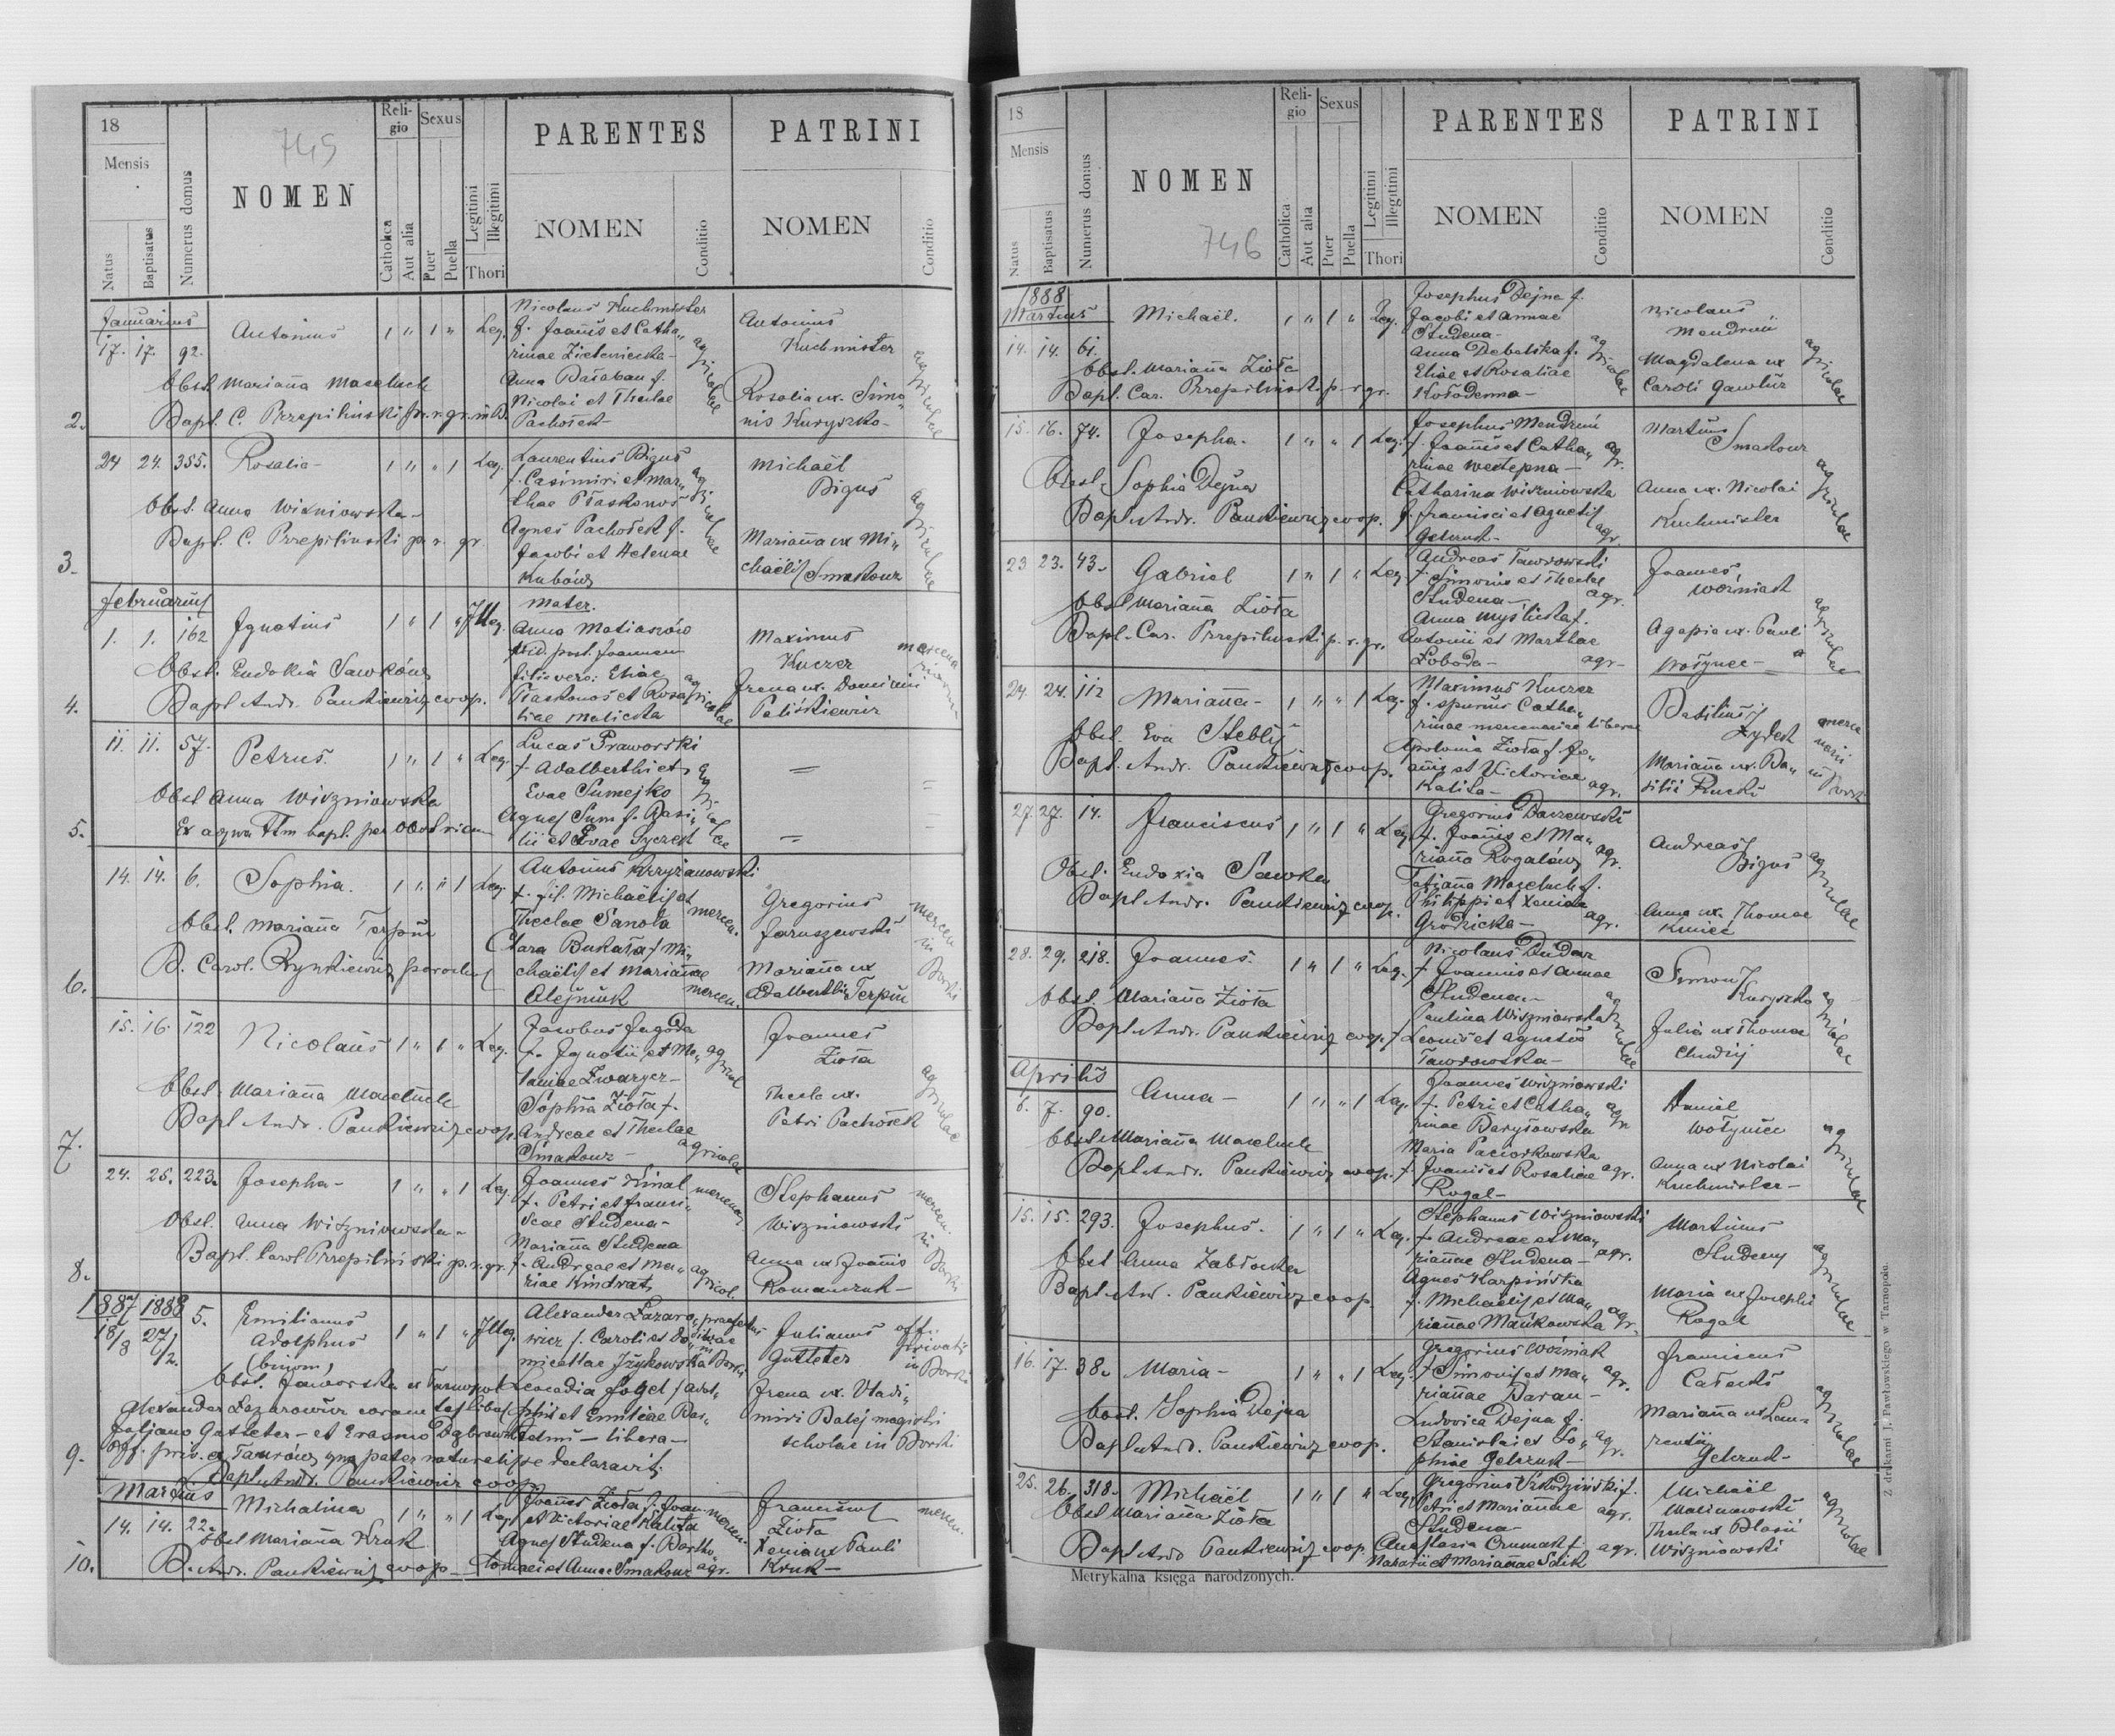 18
Mensis
Natus
Baptisatus
Numerus domus
745
NOMEN
Religio
Catholica
Aut alia
Sexus
Puer
Puella
Legitimi
Illegitimi
Thori
PARENTES
NOMEN
Conditio
PATRINI
NOMEN
Conditio
Januarius
17. 17. 92. Antonius 1 " 1 " Leg.
Obst. Marianna
Bapt. C. Przepiliński
Nicolaus Kuchmister
f. Joannis et Catha„
rinae
Anna Bałaban f.
Nicolai et Theclae
Pachołek
agricolae
Antonius
Kuchmister
Rosalia ux. Simo„
nis Kuryszko
agricolae
2.
24 24. 355. Rosalia 1 " " 1 Leg.
Obst. Anna Wiszniowska
Bapt. C. Przepiliński p. r. gr.
Laurentius Bigus
f. Casimiri et Mar„
thae Płaskonos
Agnes Pachołek f.
Jacobi et Helenae
Kubów
agricolae
Michaël
Bigus
Marianna ux Mi„
chaëlis Smakouz
agricolae
3.
Februarius
1. 1. 162 Ignatius 1 " 1 " Illeg.
Obst. Eudokia Sawków
Bapt Andr. Pankiewicz coop.
Mater.
Anna Matiaszów
vid. post. Joannem
filia vero: Eliae
Płaskonos et Rosa„
liae Malicka
agricolae
Maximus
Kuczer
Irena ux. Damiani
Paliśkiewicz
4.
11. 11. 57. Petrus. 1 " 1 " Leg.
Obst Anna Wiszniowska
Ex aqua tm bapt. per obstetricem
Lucas Praworski
f. Adalberthi et
Evae Sumejko
Agnes Sum f. Basi„
lii et Evae
5.
14. 14. 6. Sophia. 1 " " 1 Leg.
Obst. Marianna Terpin
B. Carol. Rynkiewicz parochus
Antonius Krzyżanowski
f. fil. Michaëlis et
Theclae Sanota
Clara Bukała f. Mi„
chaëlis et Mariannae
Alejniuk
mercen.
mercen.
Gregorius
Jaruszewski
Marianna ux
Adalberthi Terpin
mercen.
in
Borki
6.
15. 16. 122 Nicolaus 1 " 1 " Leg.
Obst. Marianna
Bapt Andr. Pankiewicz coop.
Jacobus Jagoda
f. Ignatii et Me„
laniae Zwarycz
Sophia Zioła f.
Andreae et Theclae
Smakouz
agricolae
Joannes
Zioła
Thecla ux.
Petri Pachołek
agricolae
7.
24. 25. 223. Josepha 1 " " 1 Leg.
Obst. Anna Wiszniowska
Bapt. Carol Przepiliński p. r. gr.
Joannes Kinal
f. Petri et Franci„
scae Studena
Marianna Studena
f. Andreae et Ma„
riae Kindrat
Stephanus
Wiszniowski
Anna ux Joannis
Romanczuk
mercen.
in Borki
8.
1887 1888
18/8 27/2. 5. Emilianus
Adolphus
(binom)
1 " 1 " Illeg.
Obst. Jaworska ex Tarnopol
Alexander Lazarowicz coram testibus
Juljano Gutteter et Erasmo Dąbrowski
off. priv. ex Taurów qua pater naturalis se declaravit.
Bapt. Andr. Pankiewicz coop
Alexander Lazaro„
wicz f. Caroli et Do„
micellae Iżykowska
Leocadia Vogel f. Adol„
phi et Emiliae
libera
Julianus
Gutteter
Irena ux. Vladi„
miri Balej magistri
scholae in Borki
9.
Martius
14. 14. 22. Michalina 1 " " 1 Leg.
Obst Marianna Kruk
B. Andr. Pankiewicz coop
Joannes Zioła f. Joan.
et Victoriae Kalita
Agnes Studena f. Bartho
lomaei et Annae Smakouz agr.
Franciscus
Zioła
Xenia ux Pauli
Kruk
mercen.
10.
18
Mensis
Natus
Baptisatus
Numerus domus
NOMEN
746
Religio
Catholica
Aut alia
Sexus
Puer
Puella
Legitimi
Illegitimi
Thori
PARENTES
NOMEN
Conditio
PATRINI
NOMEN
Conditio
1888
Martius
14. 14. 61. Michaël. 1 " 1 " Leg.
Obst. Marianna Zioła
Bapt. Car. Przepiliński p. r. gr.
Josephus Dejna f.
Jacobi et Annae
Studena
Anna Debelska f.
Eliae et Rosaliae
Kołodenna
agricolae
Nicolaus
Mendruń
Magdalena ux
Caroli Gawlicz
agricolae
15. 16. 74. Josepha 1 " " 1 Leg.
Obst. Sophia Dejna
Bapt. Andr. Pankiewicz coop.
Josephus Mendruń
f. Joannis et Catha„
rinae
Catharina Wiszniowska
f. Francisci et Agnetis
Gelczuk
agr.
Martinus
Smakouz
Anna ux. Nicolai
Kuchmister
agricolae
23 23. 43. Gabriel 1 " 1 " Leg.
Obst Marianna Zioła
Bapt. Car. Przepiliński p. r. gr.
Andreas Tawrowski
f. Simonis et Theclae
Studena agr.
Anna Myślicka f.
Antonii et Marthae
Łoboda agr.
Joannes
Woźniak
Agapia ux. Pauli
Wołyniec
agricolae
24. 24. 112 Marianna 1 " " 1 Leg.
Obst. Eva Steblij
Bapt. Andr. Pankiewicz coop.
Maximus Kuczer
f. spurius Catha„
rinae mercenariae liberae
Apolonia Zioła f. Jo„
annis et Victoriae
Kalita agr.
Basilius
Zydek
Marianna ux. Ba„
silii Rucki
mercenarii
in Borki
27. 27. 14. Franciscus 1 " 1 " Leg.
Obst. Eudoxia Sawka
Bapt Andr. Pankiewicz coop.
Gregorius Daczewski
f. Joannis et Ma„
rianna Rogalów agr.
Tatianna f.
Philippi et Xeniae
Grodzicka agr.
Andreas
Bigus
Anna ux. Thomae
Kmieć
agricolae
28. 29. 218. Joannes 1 " 1 " Leg.
Obst. Marianna Zioła
Bapt. Andr. Pankiewicz coop.
Nicolaus Dudar
f. Joannis et Annae
Studena
Paulina Wiszniowska
f. Leonis et Agnetis
Tawrowska
agricolae
Simon
Kuryszko
Julia ux Thomae
Chudzij
agricolae
Aprilis
6. 7. 90. Anna 1 " " 1 Leg.
Obst. Marianna
Bapt. Andr. Pankiewicz coop.
Joannes Wiszniowski
f. Petri et Catha„
rinae Barysowska
Maria Paciorkowska
f. Joannis et Rosaliae agr.
Rogal
Daniel
Wołyniec
Anna ux Nicolai
Kuchmister
agricolae
15. 15. 293. Josephus. 1 " 1 " Leg.
Obst Anna Zabłocka
Bapt. And. Pankiewicz coop.
Stephanus Wiszniowski
f. Andreae et Ma„
riannae Studena agr.
Agnes Karpińska
f. Michaëlis et Ma„
riannae Mańkowska agr.
Martinus
Studeny
Maria ux Josephi
Rogal
agricolae
16. 17. 38. Maria 1 " " 1 Leg.
Obst. Sophia Dejna
Bapt. Andr. Pankiewicz coop.
Gregorius Woźniak
f. Simonis et Ma„
riannae Baran agr.
Ludovica Dejna f.
Stanislai et So„
phiae Gelczuk agr.
Franciscus
Całecki
Marianna ux Lau„
rentii
Gelczuk
agricolae
25. 26. 318. Michaël 1 " 1 " Leg.
Obst Marianna Zioła
Bapt Andr Pankiewicz coop.
Gregorius f.
Petri et Mariannae agr.
Studena
Anastasia f. agr.
et Mariannae
Michaël
Malinowski
Thecla ux Blasii
Wiszniowski
agricolae
Metrykalna księga narodzonych.
Z drukarni J. Pawłowskiego w Tarnopolu.